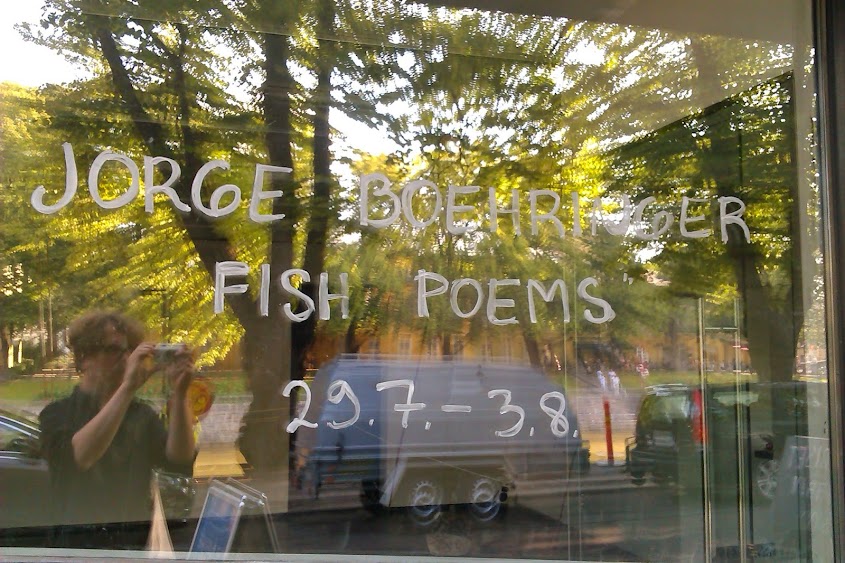 JORGE BOEHRINGER
FISH POEMS"
29.7.–3.8.